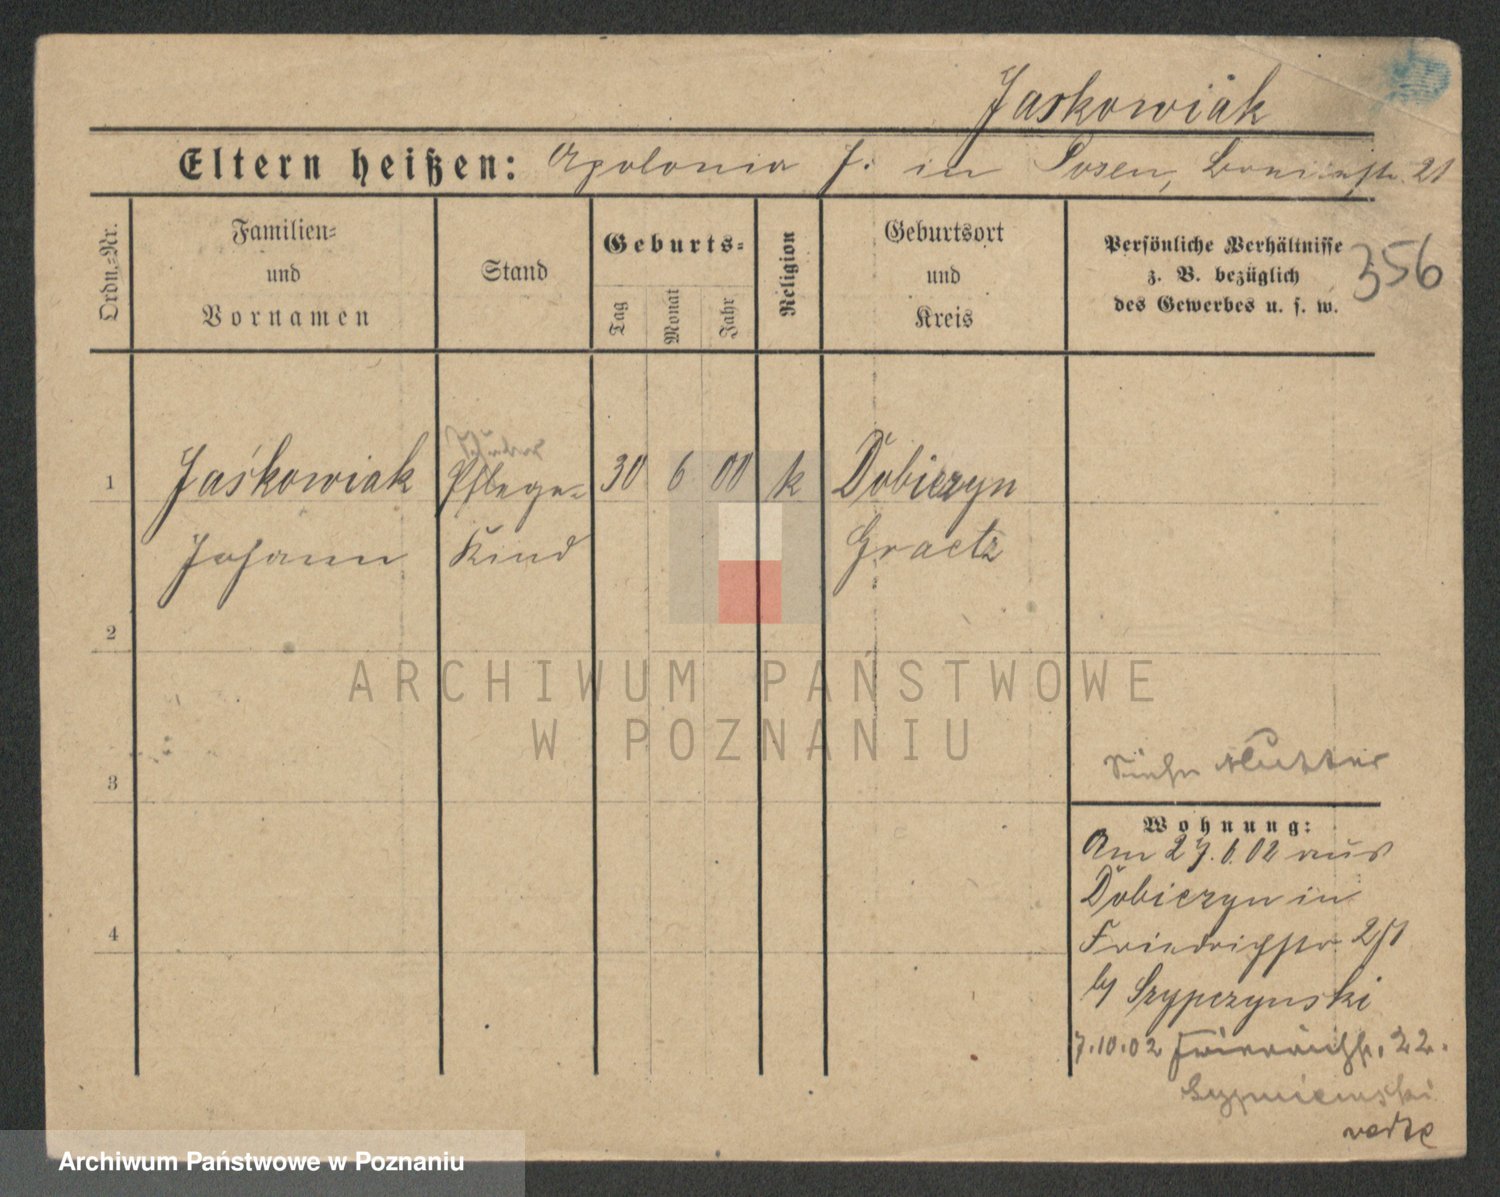 Jaskowiak
Eltern heißen: Apolonia J. in Posen, 21
Ordn.-Nr.
Familien-
und
Vornamen
Stand
Geburts-
Tag
Monat
Jahr
Religion
Geburtsort
und
Kreis
Persönliche Verhältnisse
z. B. bezüglich
des Gewerbes u. s. w.
356
1
Jaśkowiak
Pflege-
30 6 00 k
Dobiezyn
Johann
Kind
Graetz
2
3
4
Siehe Mutter
Wohnung:
Am 27.6.02 aus
Dobiezyn in
Friedrichstr 2/1
b/ Szypczynski
7.10.02 22.
verte
ARCHIWUM PAŃSTWOWE
W POZNANIU
Archiwum Państwowe w Poznaniu